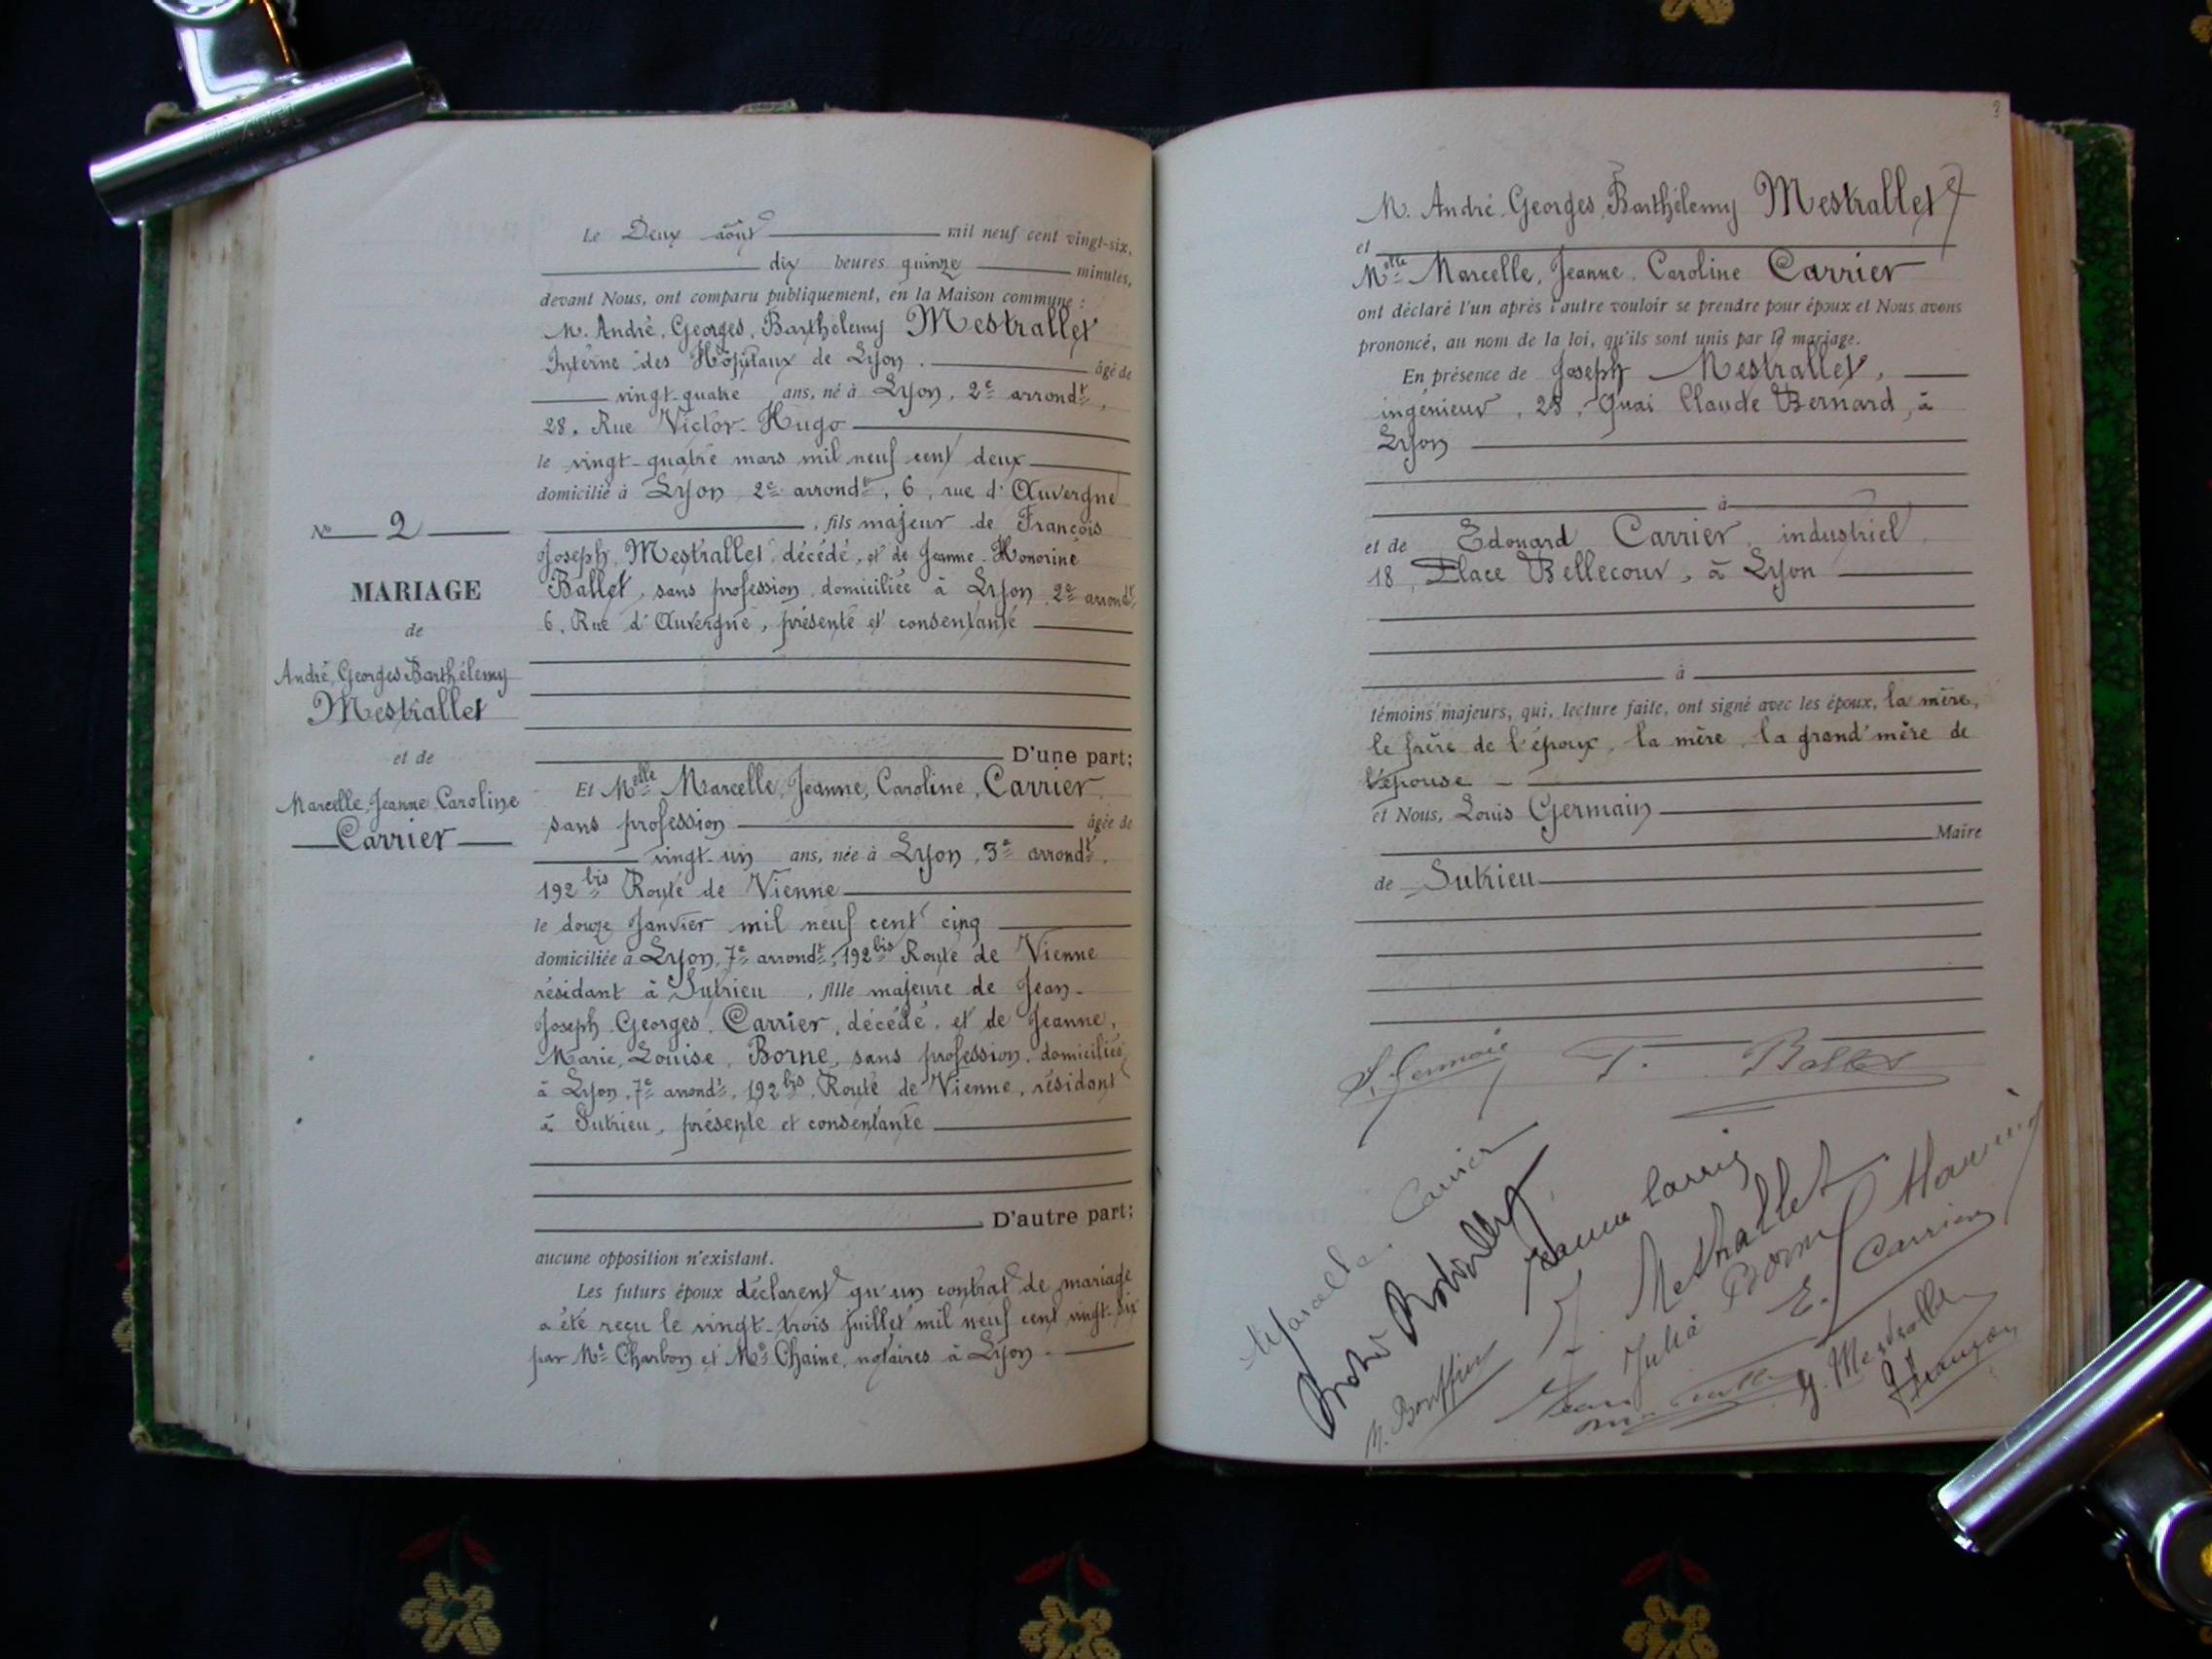 Le Deux août mil neuf cent vingt-six,
dix heures quinze minutes,
devant Nous, ont comparu publiquement, en la Maison commune :
M. André, Georges, Barthélemy Mestrallet
Interne des Hôpitaux de Lyon. âgé de
vingt-quatre ans, né à Lyon, 2e arrondt,
28, Rue Victor-Hugo
le vingt-quatre mars mil neuf cent deux
domicilié à Lyon, 2e arrondt, 6, rue d'Auvergne
, fils majeur de François
Joseph, Mestrallet décédé, et de Jeanne-Honorine
Ballet, sans profession, domiciliée à Lyon, 2e arrondt,
6, Rue d'Auvergne, présente et consentante
D'une part;
Et Melle Marcelle, Jeanne, Caroline, Carrier,
sans profession âgée de
vingt-un ans, née à Lyon, 3e arrondt,
192 bis Route de Vienne
le douze Janvier mil neuf cent cinq
domiciliée à Lyon, 7e arrondt, 192 bis Route de Vienne
résidant à Sutrieu, fille majeure de Jean-
Joseph-Georges, Carrier, décédé, et de Jeanne,
Marie, Louise, Borne, sans profession, domiciliée
à Lyon, 7e arrondt, 192 bis, Route de Vienne, résidant
à Sutrieu, présente et consentante
D'autre part;
aucune opposition n'existant.
Les futurs époux déclarent qu'un contrat de mariage
a été reçu le vingt-trois juillet mil neuf cent vingt-six
par Me Charbon et Me Chaine, notaires à Lyon.
No 2
MARIAGE
de
André, Georges Barthélemy
Mestrallet
et de
Marcelle, Jeanne, Caroline
Carrier
M. André, Georges, Barthélemy Mestrallet
et
Melle Marcelle, Jeanne, Caroline Carrier
ont déclaré l'un après l'autre vouloir se prendre pour époux et Nous avons
prononcé, au nom de la loi, qu'ils sont unis par le mariage.
En présence de Joseph Mestrallet,
ingénieur, 28, Quai Claude Bernard, à
Lyon
à
et de Edouard Carrier, industriel,
18, Place Bellecour, à Lyon
à
témoins majeurs, qui, lecture faite, ont signé avec les époux, la mère,
le frère de l'époux, la mère, la grand'mère de
l'épouse
et Nous, Louis Germain
Maire
de Sutrieu
L. Germain
Marcelle Carrier
J. Mestrallet
Julia Borne
E. Carrier
G. Mestrallet